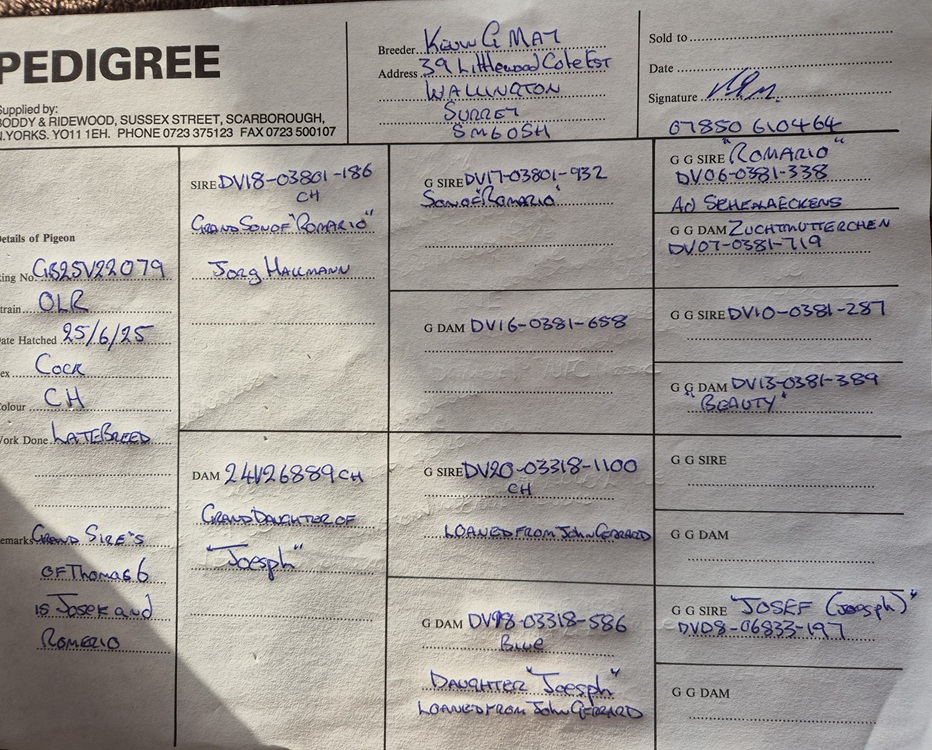 PEDIGREE
Supplied by:
BODDY & RIDEWOOD, SUSSEX STREET, SCARBOROUGH,
N.YORKS. YO11 1EH. PHONE 0723 375123 FAX 0723 500107
Breeder
Address 39 Littlewood Cote Est
WALLINGTON
SURREY
SM6 0SH
Sold to
Date
Signature
07850 610464
Details of Pigeon
Ring No. GB25V22079
Strain OLR
Date Hatched 25/6/25
Sex Cock
Colour CH
Work Done LATE BREED
Remarks Grand SIRE'S
OF Thomas 6
is Josef and
ROMERIO
SIRE DV18-03801-186
CH
GRAND SON OF "ROMARIO"
JORG HALLMANN
DAM 24V26889 CH
GRAND DAUGHTER OF
"Joesph"
G SIRE DV17-03801-932
Son of "Romario"
G DAM DV16-0381-658
G SIRE DV20-03318-1100
CH
LOANED FROM John GERRARD
G DAM DV98-03318-586
BLUE
DAUGHTER "Joesph"
LOANED FROM John GERRARD
G G SIRE "ROMARIO"
DV06-0381-338
AD SCHENAECKENS
G G DAM ZUCHTMUTTERCHEN
DV07-0381-719
G G SIRE DV10-0381-287
G G DAM DV13-0381-389
"BEAUTY"
G G SIRE
G G DAM
G G SIRE "JOSEF (Joesph)"
DV08-06833-197
G G DAM